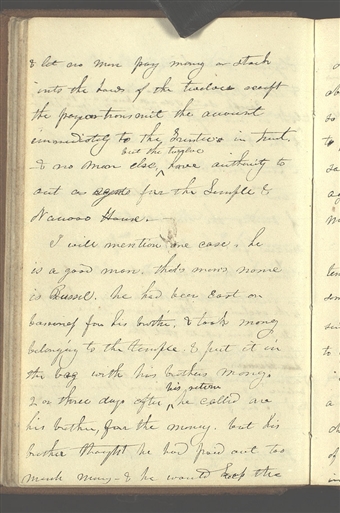 & let no man pay money or stock
into the hands of the twelve except
the payor transmit the account
immediately to the Trustee in trust.
but the twelve
& no man else, ^ have authority to
act as agents for the Temple &
Nauvoo House.
I will mention one case. he
is a good man. that mans name
is Russel. he had been East on
business for his brother, & took money
belonging to the temple, & put it in
the bag with his brothers money.
his return
2 or three days after ^ he called on
his brother, for the money. but his
brother thought he had paid out too
much money - & he would keep the